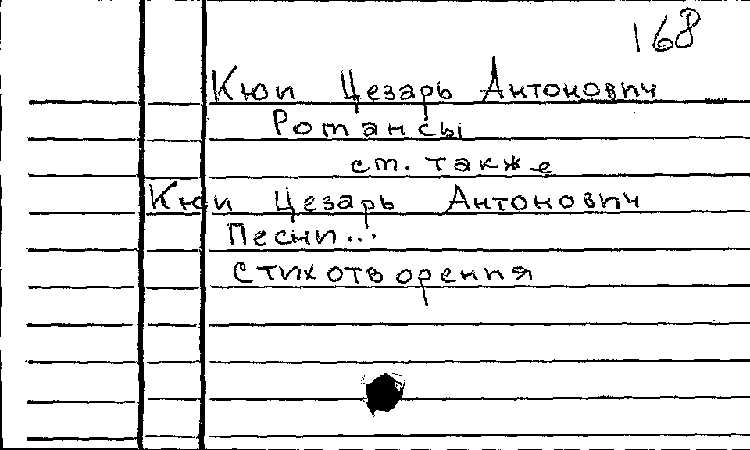 168
Кюи Цезарь Антонович
Романсы
см. также
Кюи Цезарь Антонович
Песни...
Стихотворения